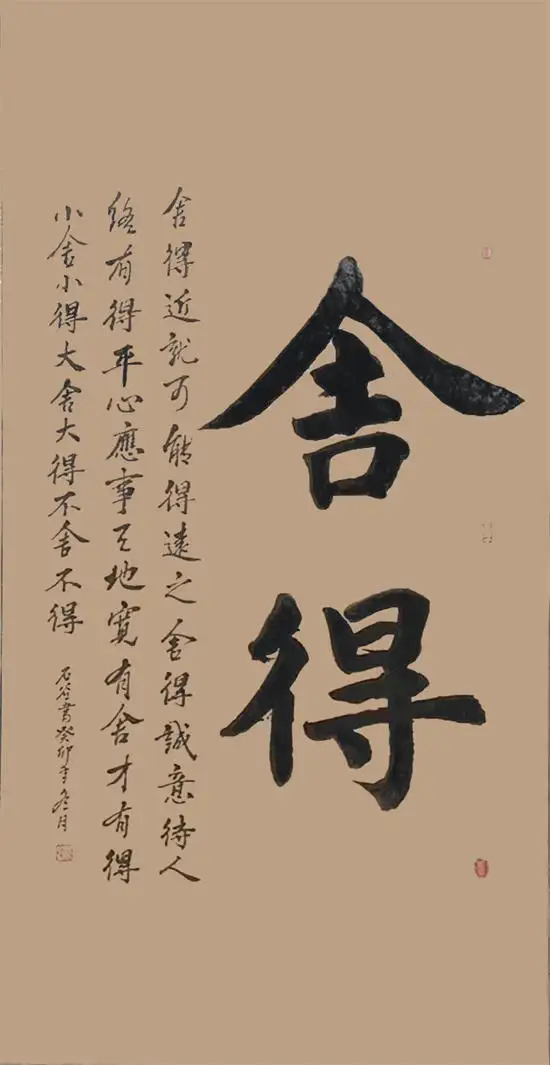 舍得
舍得近就可能得遠之舍得誠意待人
終有得平心應事天地寬有舍才有得
小舍小得大舍大得不舍不得
石谷書癸卯年冬月